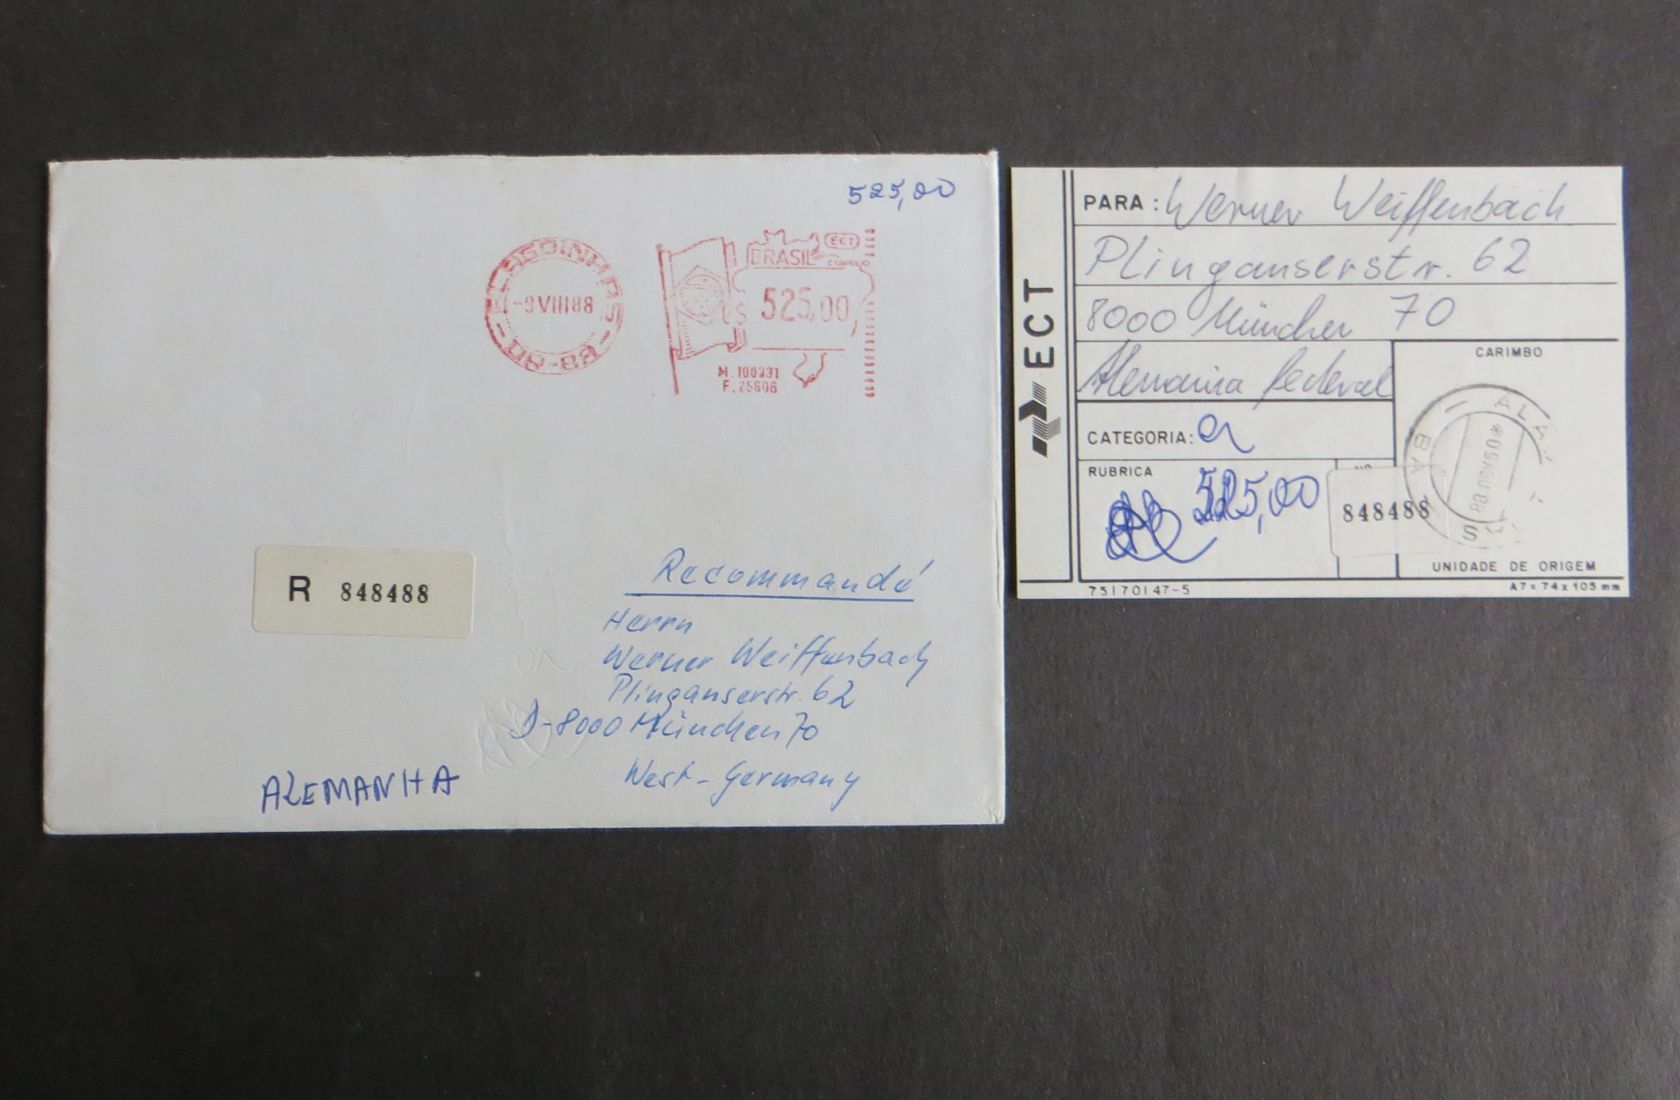 525,00
-9 VIII 88
BRASIL
ECT
CORREIO
525,00
M. 100231
F. 25606
R 848488
Recommandé
Herrn
Werner Weiffenbach
Plinganserstr. 62
D-8000 München 70
West-Germany
ALEMANHA
ECT
PARA: Werner Weiffenbach
Plinganserstr. 62
8000 München 70
Alemanha federal
CATEGORIA:
RUBRICA
525,00
848488
CARIMBO
UNIDADE DE ORIGEM
75170147-5
A7 = 74 x 105 mm